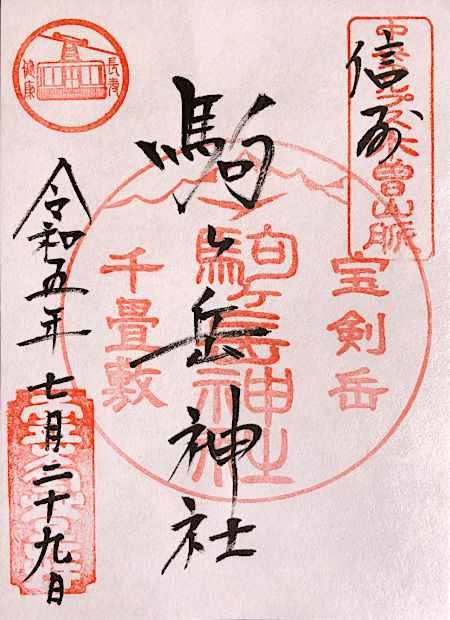 信州
中央アルプス木曽山脈
駒ヶ岳神社
宝剣岳
駒ヶ岳神社
千畳敷
長寿
健康
令和五年七月二十九日